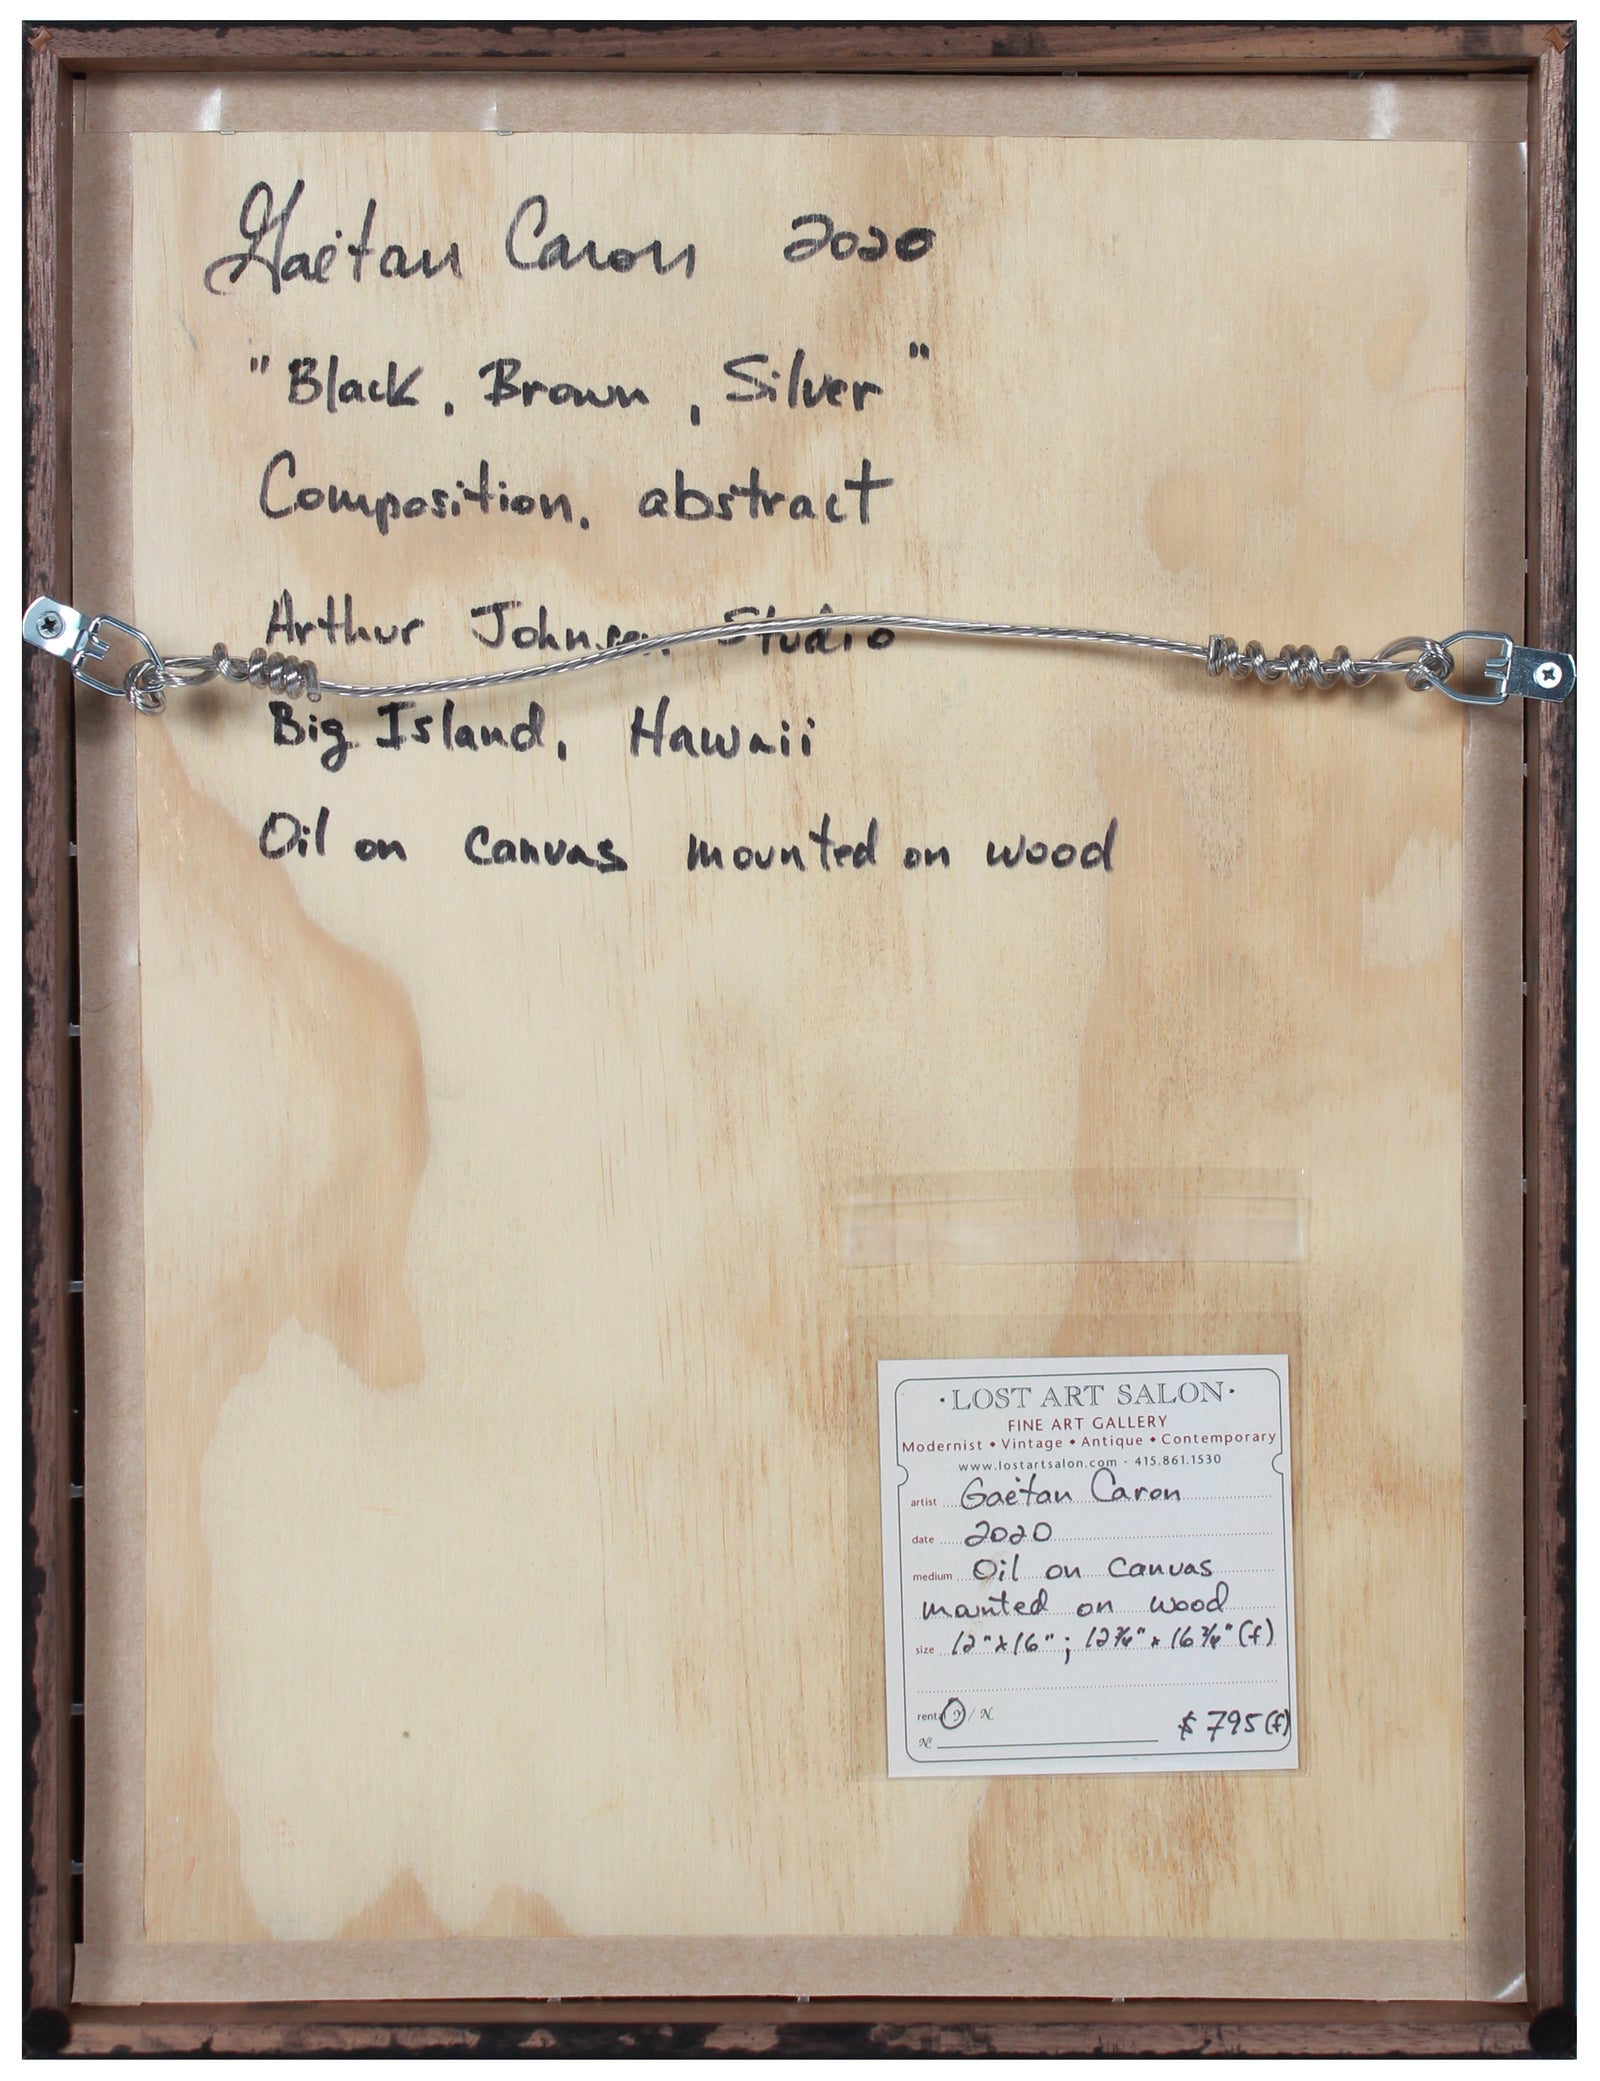 Gaëtan Caron 2020
"Black, Brown, Silver"
Composition, abstract
Arthur Johnson Studio
Big Island, Hawaii
Oil on canvas mounted on wood
·LOST ART SALON·
FINE ART GALLERY
Modernist • Vintage • Antique • Contemporary
www.lostartsalon.com - 415.861.1530
artist Gaëtan Caron
date 2020
medium Oil on canvas
mounted on wood
size 12"x16"; 12¾"x16¾"(f)
rental Y / N
Nº $795(f)